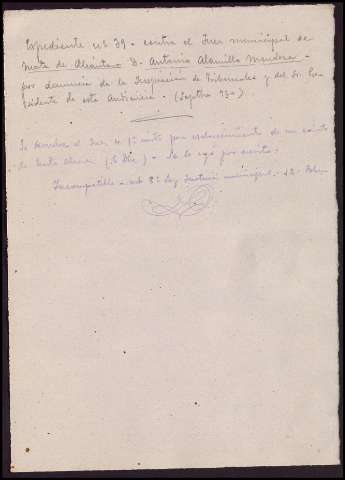 Expediente nº 39 - contra el Juez municipal de
Mata de Alcántara D. Antonio Alamillo Mendoza -
por denuncia de la Inspección de Tribunales y del Sr. Pre-
sidente de esta Audiencia - (Septbre 930)
Se devuelve al Juez de 1ª para esclarecimiento de un
de (5 Dbre) - Se le oyó por escrito -
Incompatible - art 8º Ley Justicia municipal - 12